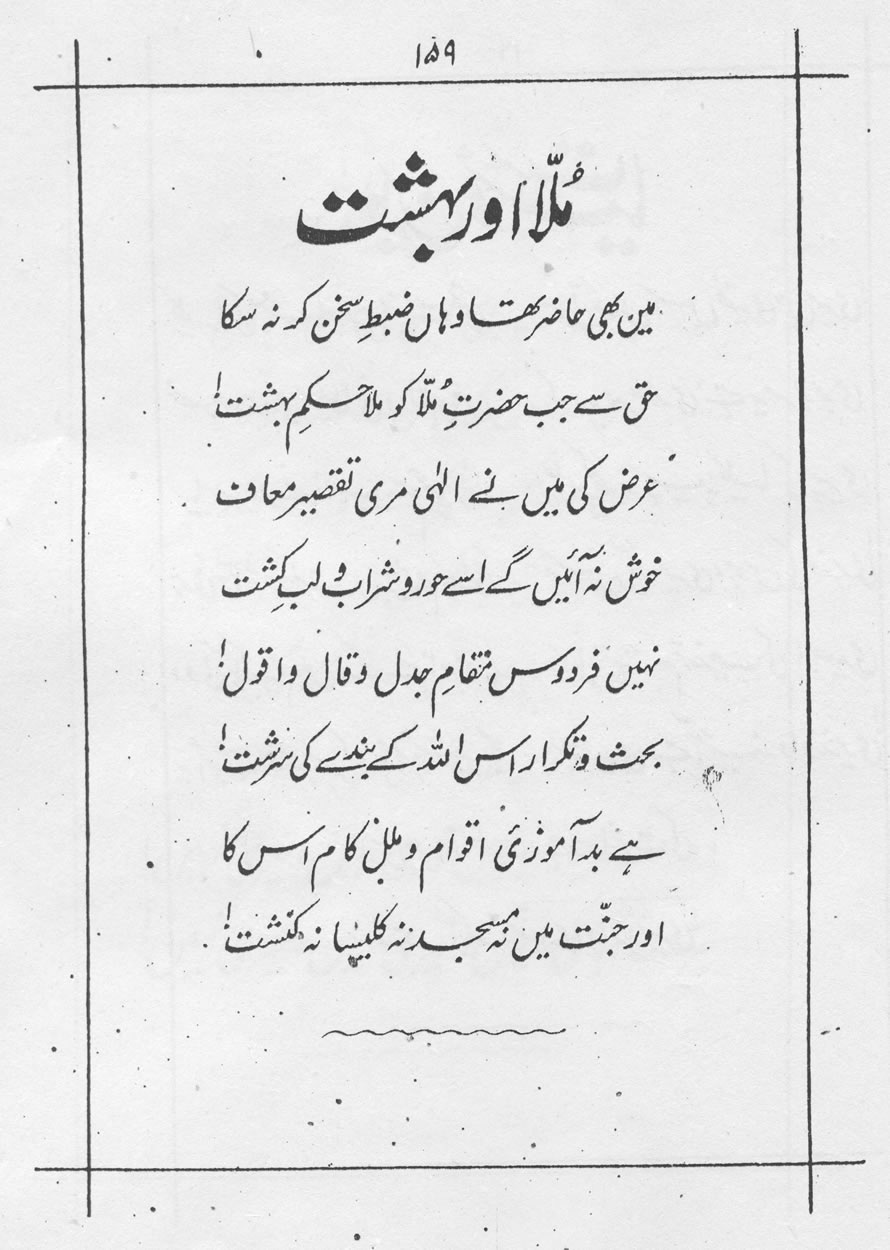 ۱۵۹
مُلّا اور بہشت
مین بھی حاضر تھا وہاں ضبطِ سخن کر نہ سکا
حق سے جب حضرتِ مُلّا کو ملا حکمِ بہشت!
عرض کی میں نے الٰہی مری تقصیر معاف
خوش نہ آئیں گے اسے حور و شراب و لبِ کِشت
نہیں فردوس مقامِ جدل و قال و اقول!
بحث و تکرار اس اللہ کے بندے کی سرشت!
ہے بد آموزیٔ اقوام و ملل کام اس کا
اور جنّت میں نہ مسجد نہ کلیسا نہ کنشت!